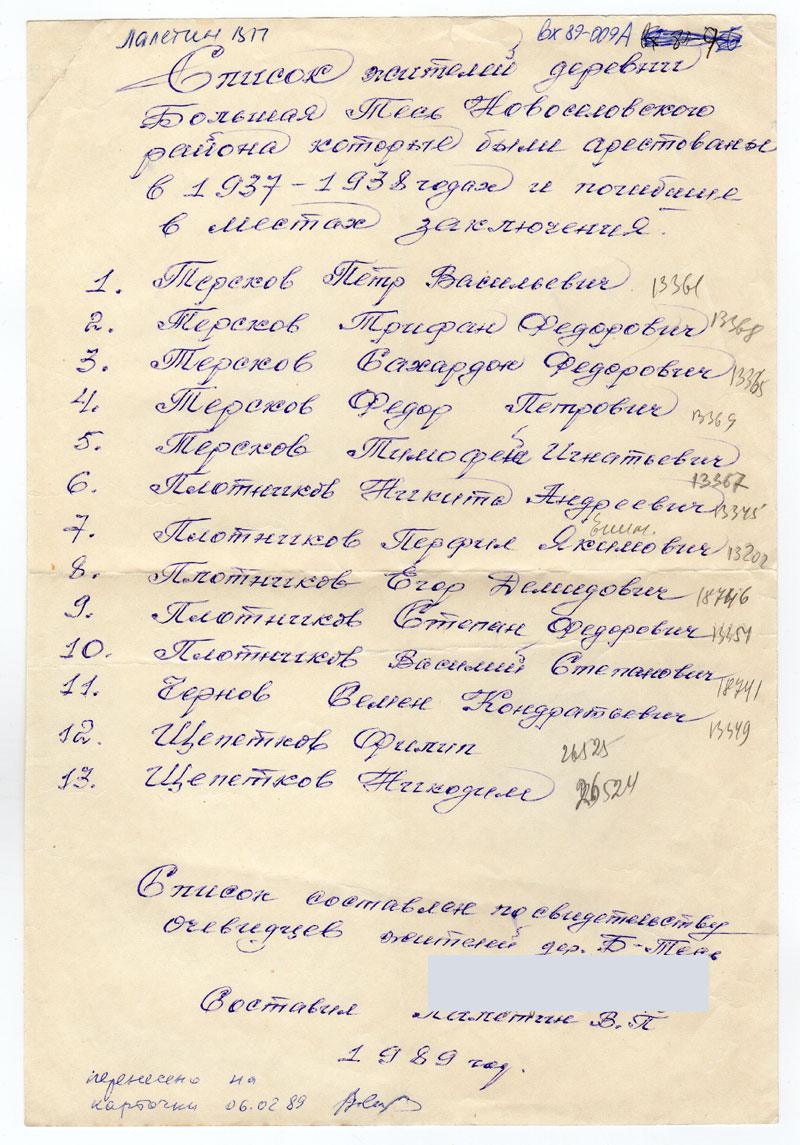 Лалетин ВП Вх 89-009А
Список жителей деревни
Большая Тесь Новоселовского
района которые были арестованы
в 1937-1938 годах и погибшие
в местах заключения.
1. Терсков Петр Васильевич 13361
2. Терсков Трифан Федорович 13368
3. Терсков Сахардон Федорович 13365
4. Терсков Федор Петрович 13369
5. Терсков Тимофей Игнатьевич 13367
6. Плотников Никита Андреевич 13345
7. Плотников Перфил Якимович 13202
8. Плотников Егор Демидович 18746
9. Плотников Степан Федорович 13351
10. Плотников Василий Степанович 18741
11. Чернов Семен Кондратьевич 13349
12. Щепетков Филип 26525
13. Щепетков Никодим 26524
Список составлен по свидетельству
очевидцев жителей дер. Б-Тесь
Составил Лалетин В.П
1989 год.
перенесено на
карточки 06.02 89